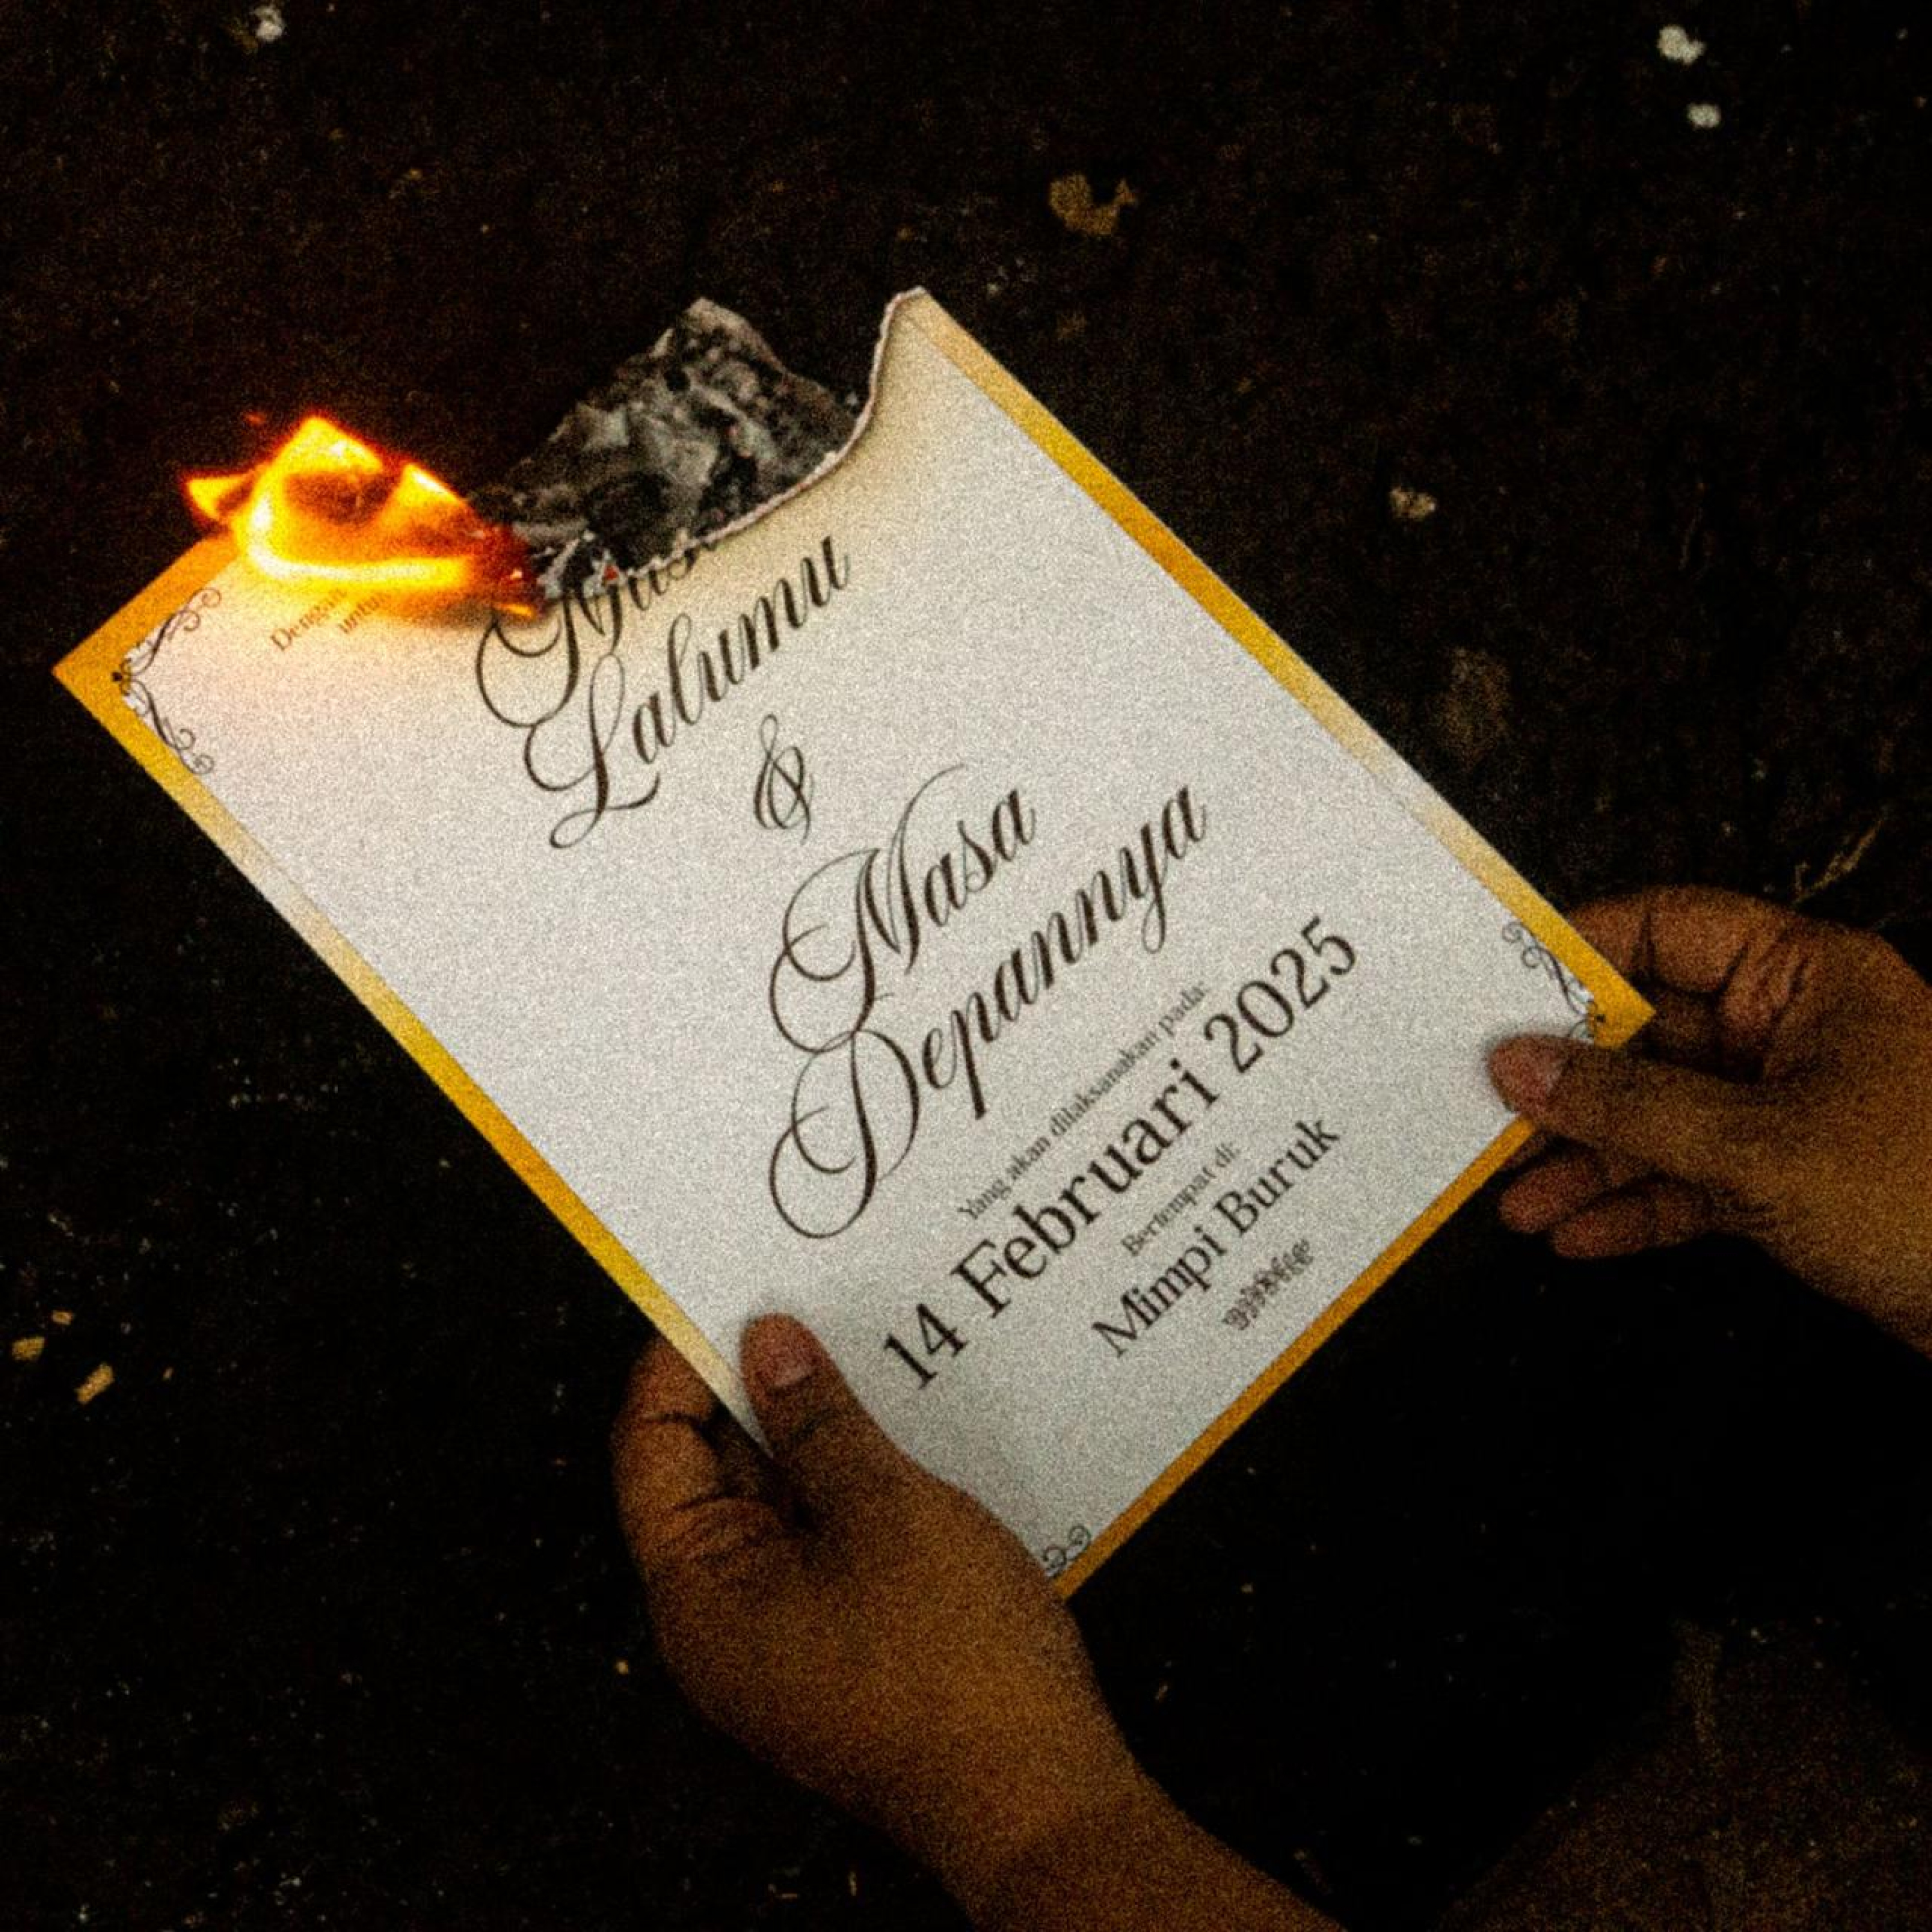 Dengan
untuk
Lalumu
&
Masa
Depannya
Yang akan dilaksanakan pada:
14 Februari 2025
Bertempat di:
Mimpi Buruk